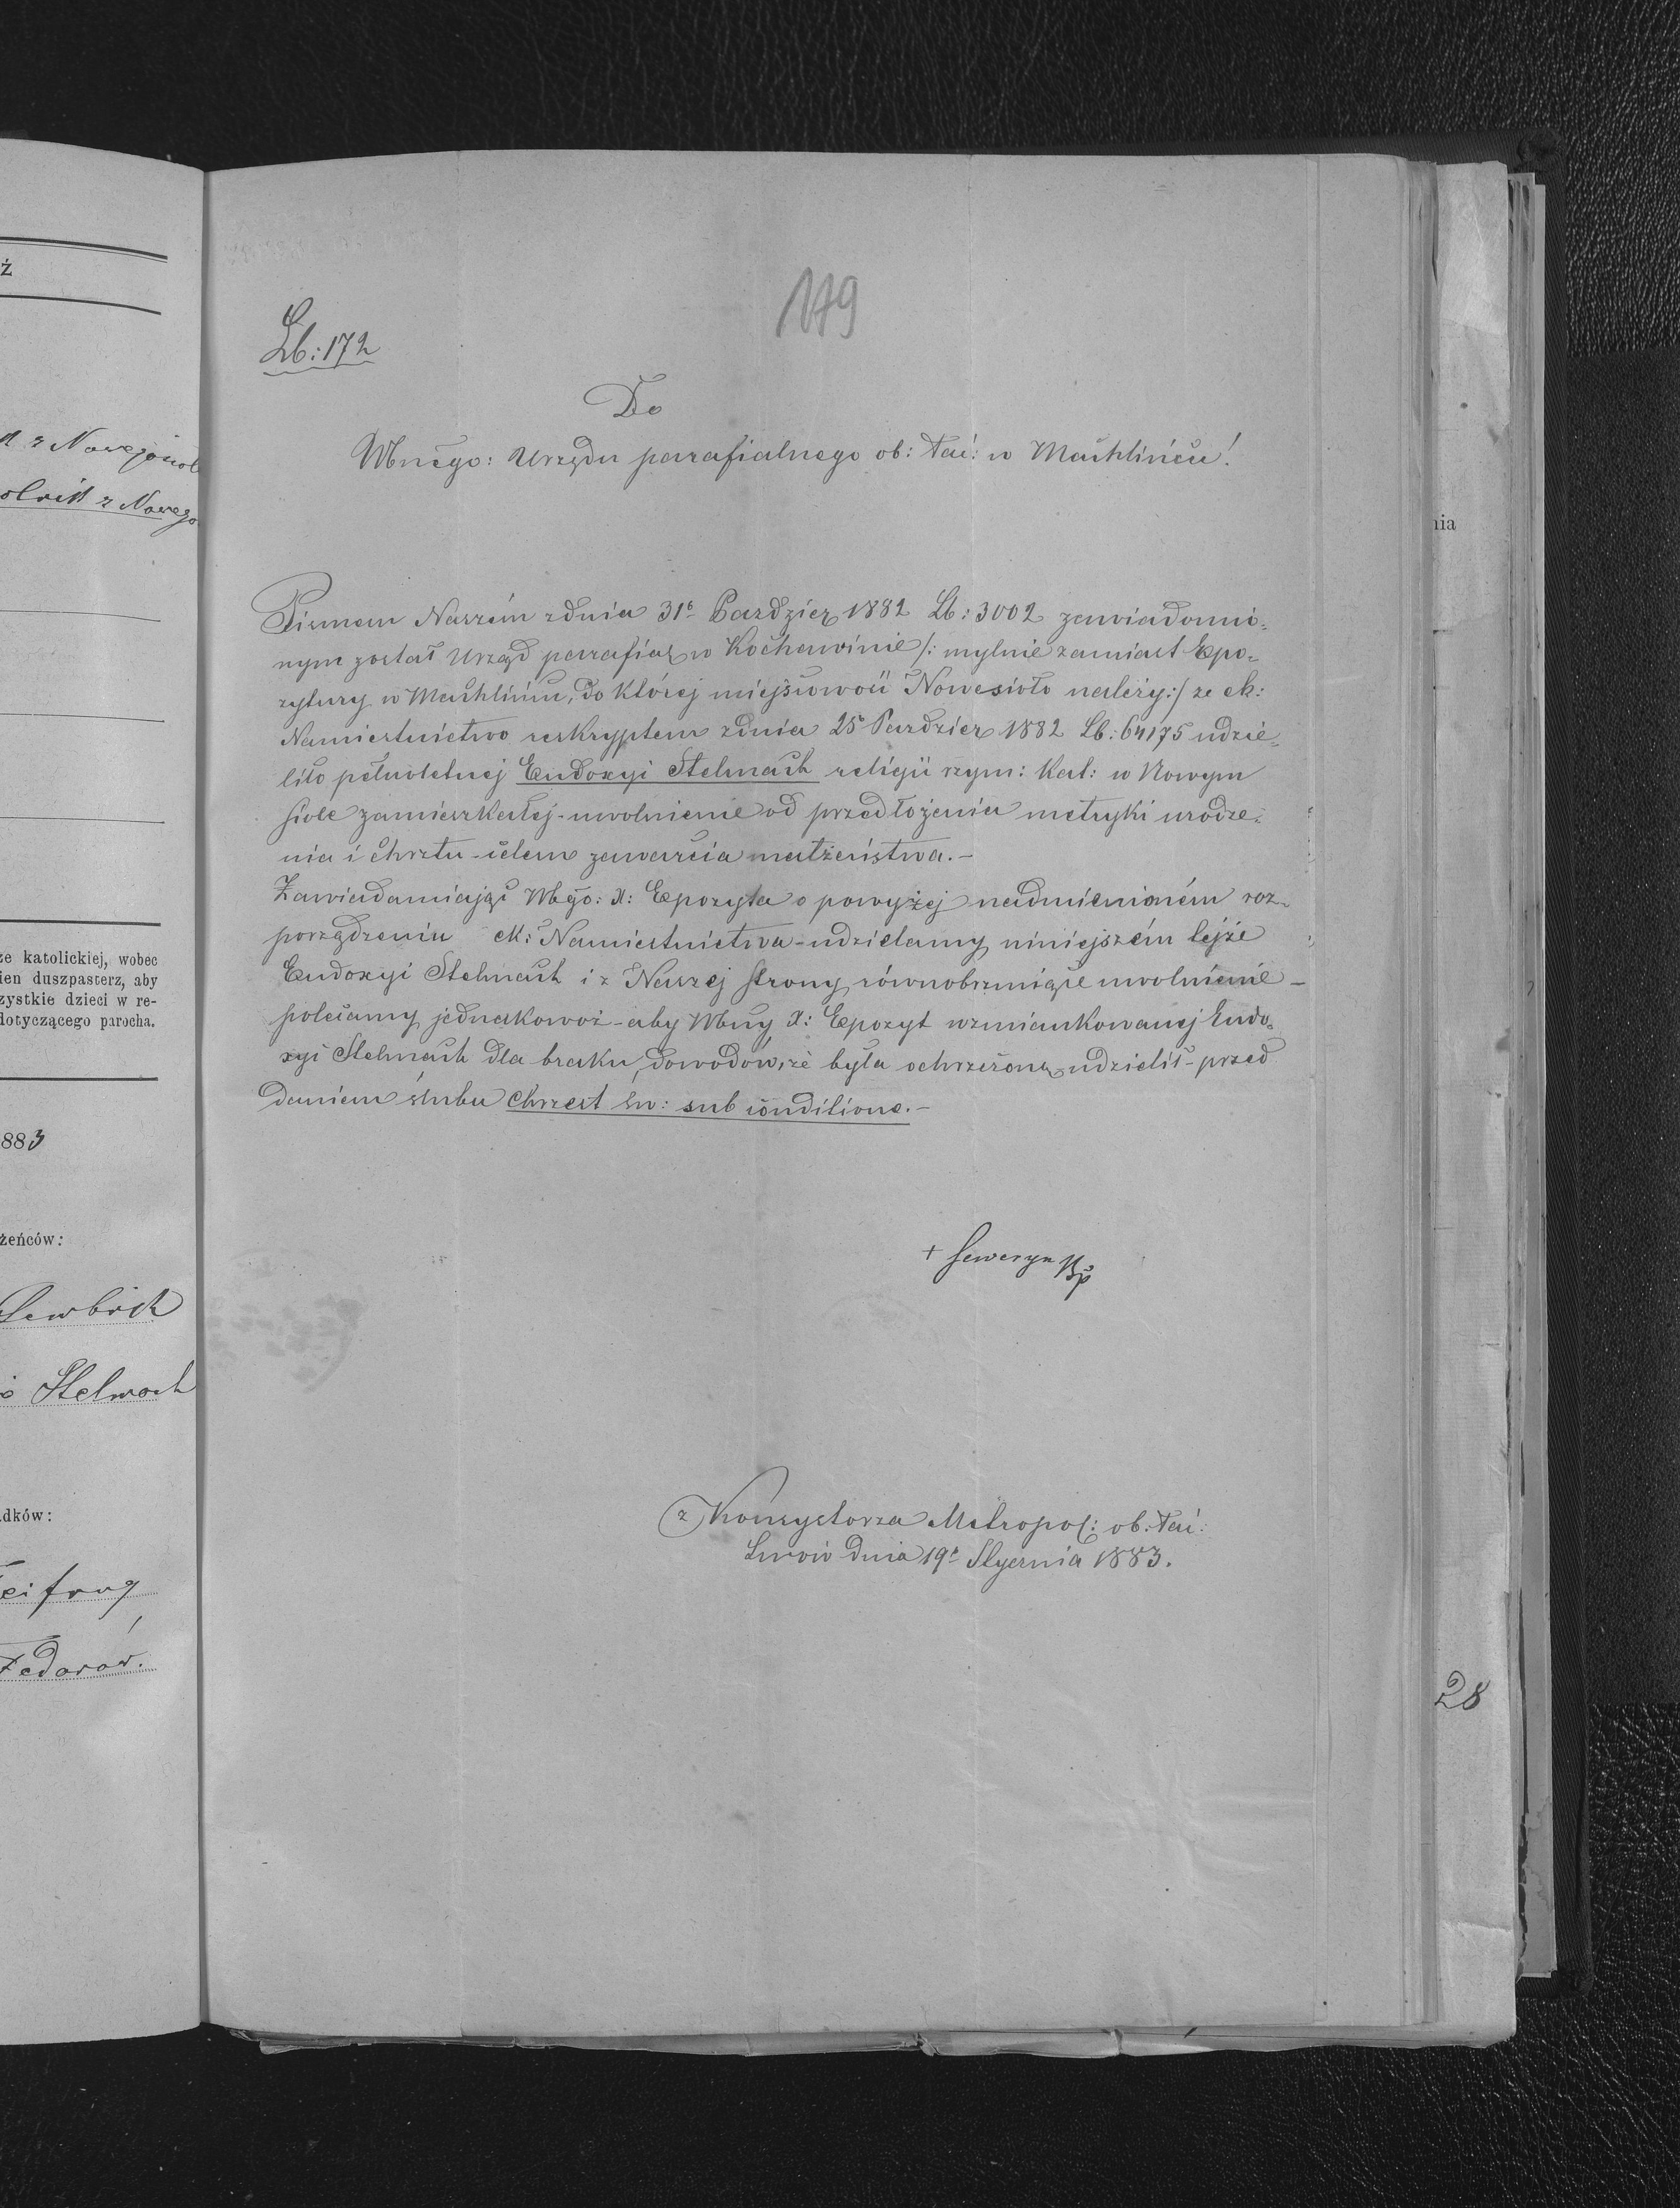 ź
z Nowegosioł
olnik z Nowego
ze katolickiej, wobec
ien duszpasterz, aby
zystkie dzieci w re-
dotyczącego parocha.
1883
żeńców:
Stelmach
dków:
Fedorów.
179
Lb: 172
Do
Wbnego: Urzędu parafialnego ob: łać: w Machlińcu!
Pismem Naszém z dnia 31º Paździer 1882 Lb: 3002 zawiadomio=
nym został Urząd parafial w Kochawinie /: mylnie zamiast Expo=
zytury w Machlińcu, do której miejscowość Nowesioło należy :/ że ck:
Namiestnictwo reskryptem z dnia 25º Paździer 1882 Lb: 64175 udzie=
liło pełnoletnej Eudoxyi Stelmach religii rzym: kat: w Nowym
siole zamieszkałej - uwolnienie od przedłożenia metryki urodze=
nia i chrztu - celem zawarcia małżeństwa. -
Zawiadamiając Wbgo: X: Expozyta o powyżej nadmienioném roz=
porządzeniu ck: Namiestnictwa - udzielamy niniejszém tejże
Eudoxyi Stelmach i z Naszej strony równobrzmiące uwolnienie -
polecamy jednakowoż - aby Wbny X: Expozyt wzmiankowanej Eudo=
xyi Stelmach dla braku dowodów, że była ochrzczoną udzielił - przed
daniem ślubu Chrzest św: sub conditione. -
+ Seweryn Bp
z Konsystorza Metropol: ob: łać:
Lwów dnia 19º Stycznia 1883.
nia
28